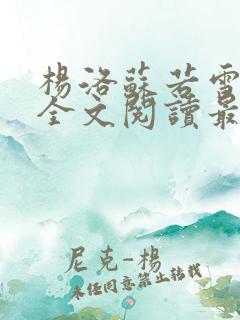 楊洛蘇若雪
全文閱讀最
尼克-楊
未經同意禁止轉載